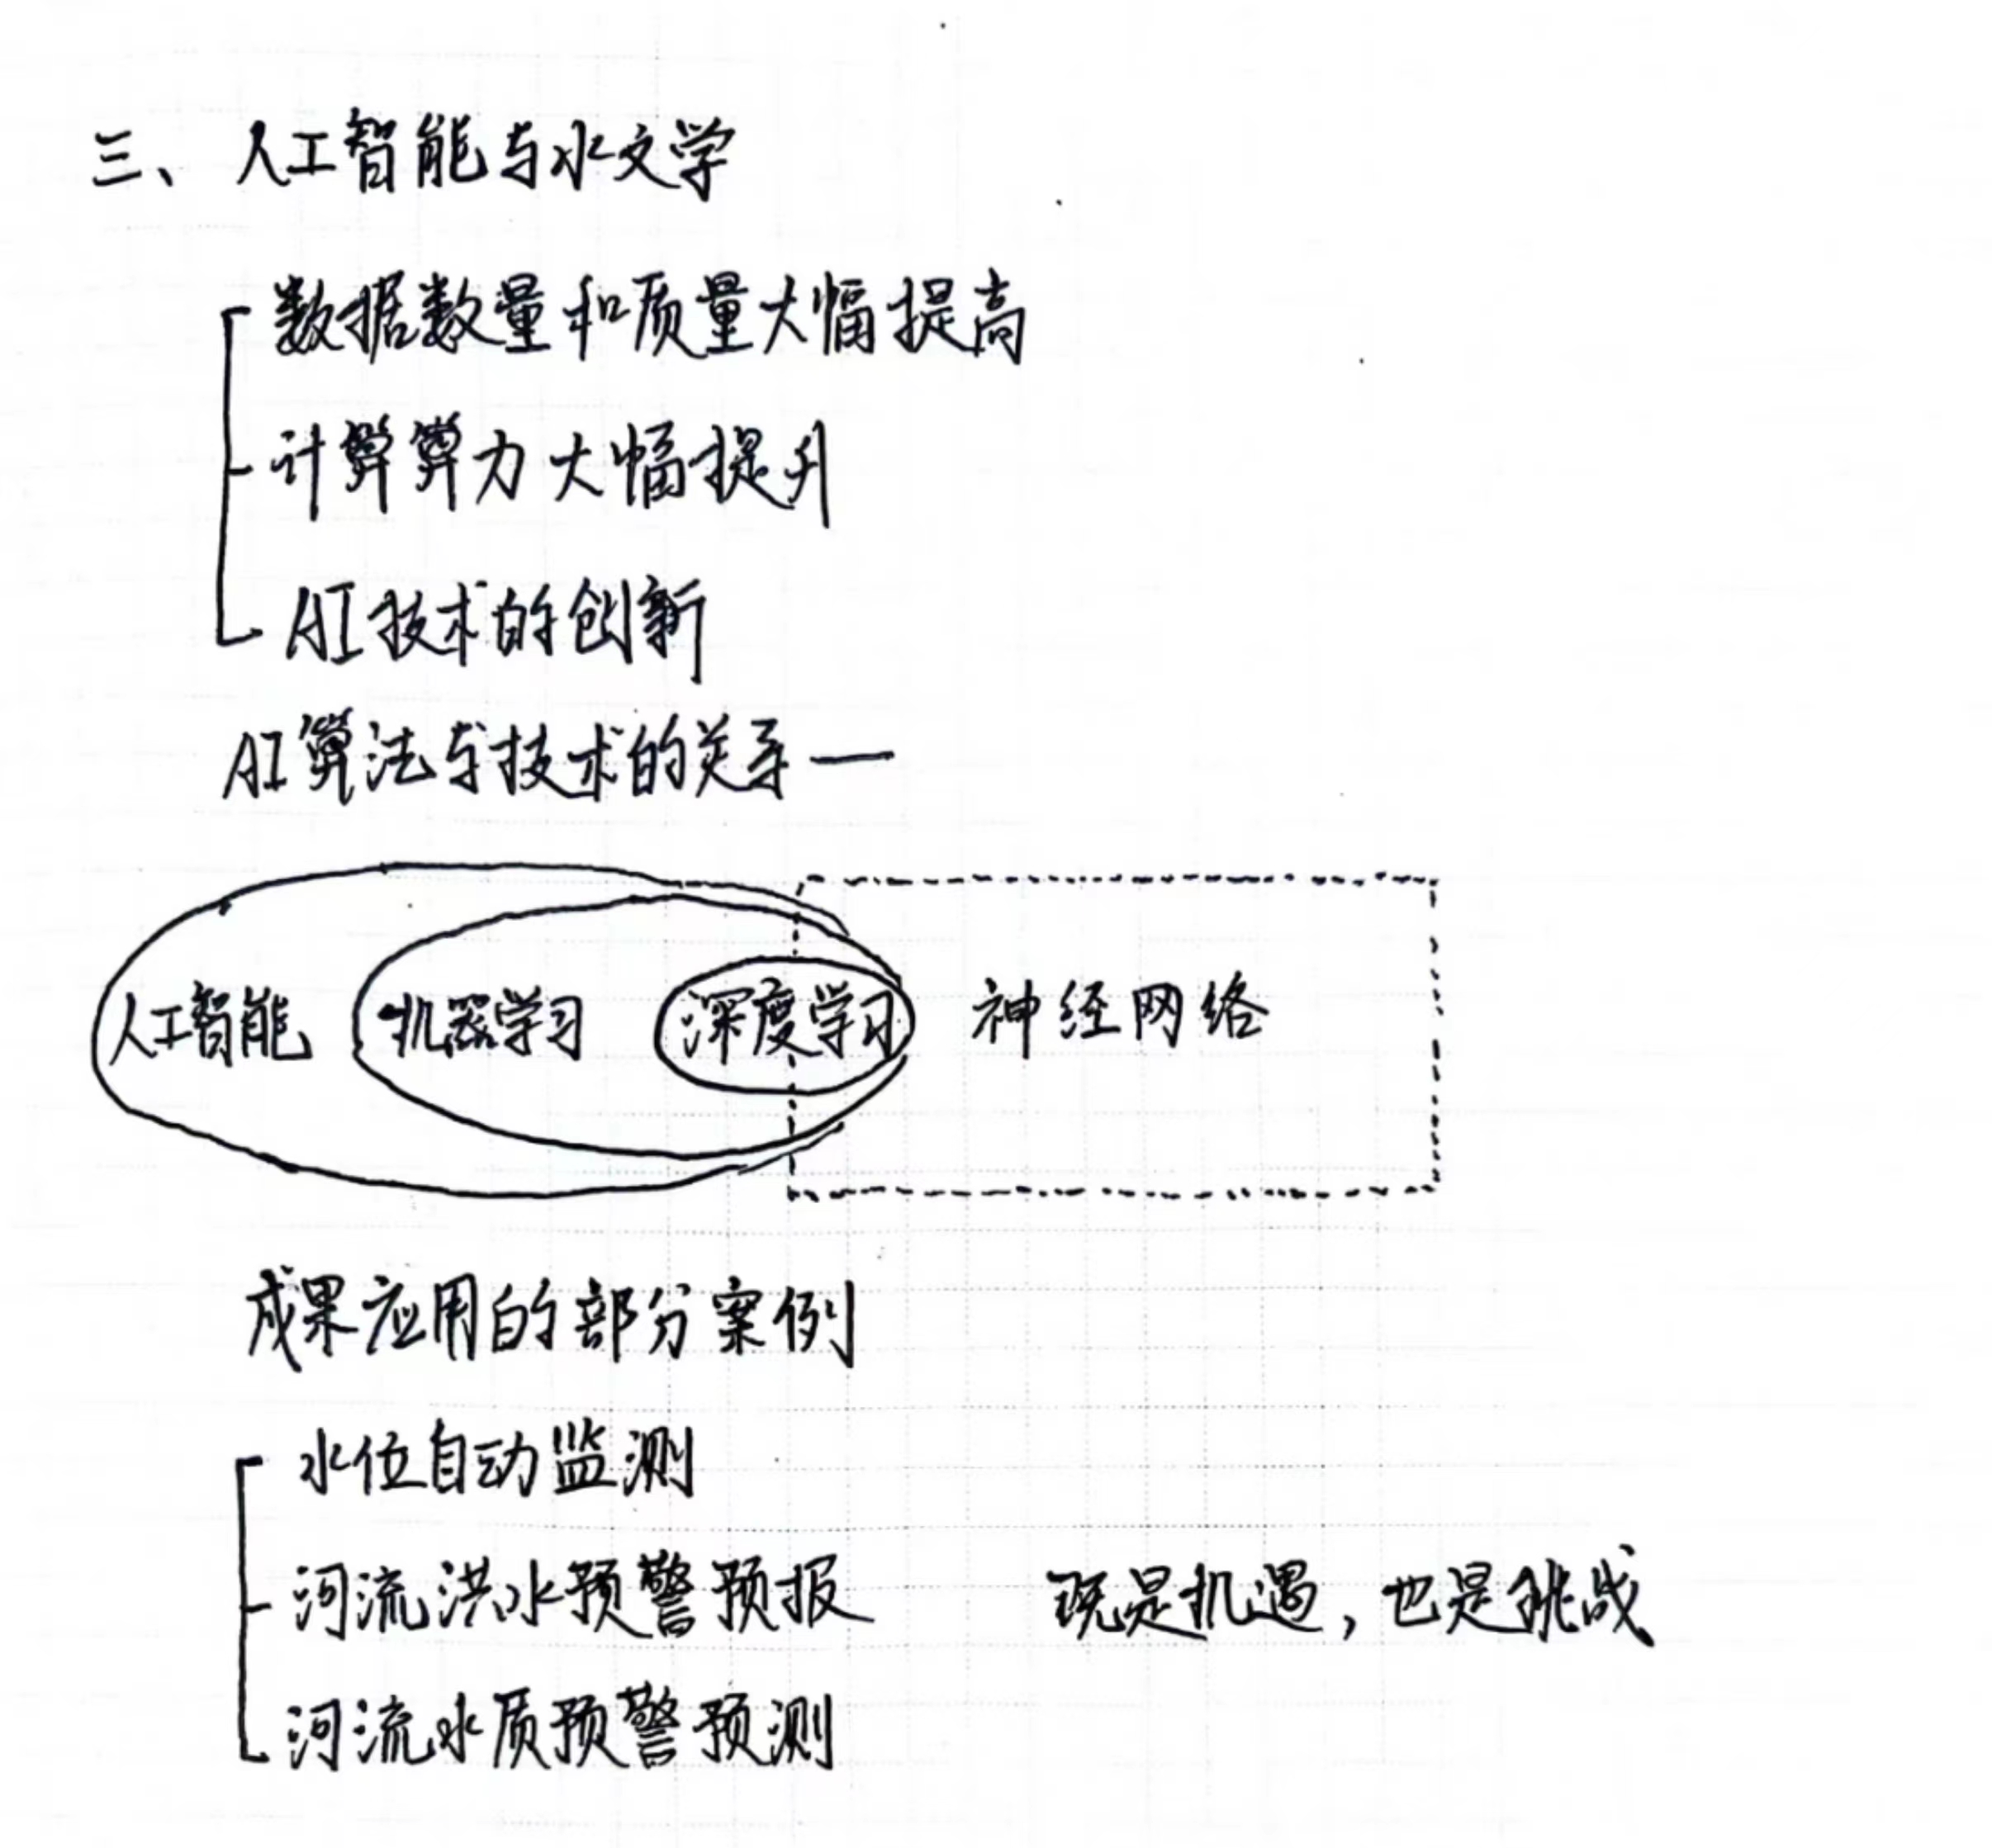 三、人工智能与水文学
数据数量和质量大幅提高
计算算力大幅提升
AI技术的创新
AI算法与技术的关系—
人工智能 机器学习 深度学习 神经网络
成果应用的部分案例
水位自动监测
河流洪水预警预报 既是机遇,也是挑战
河流水质预警预测